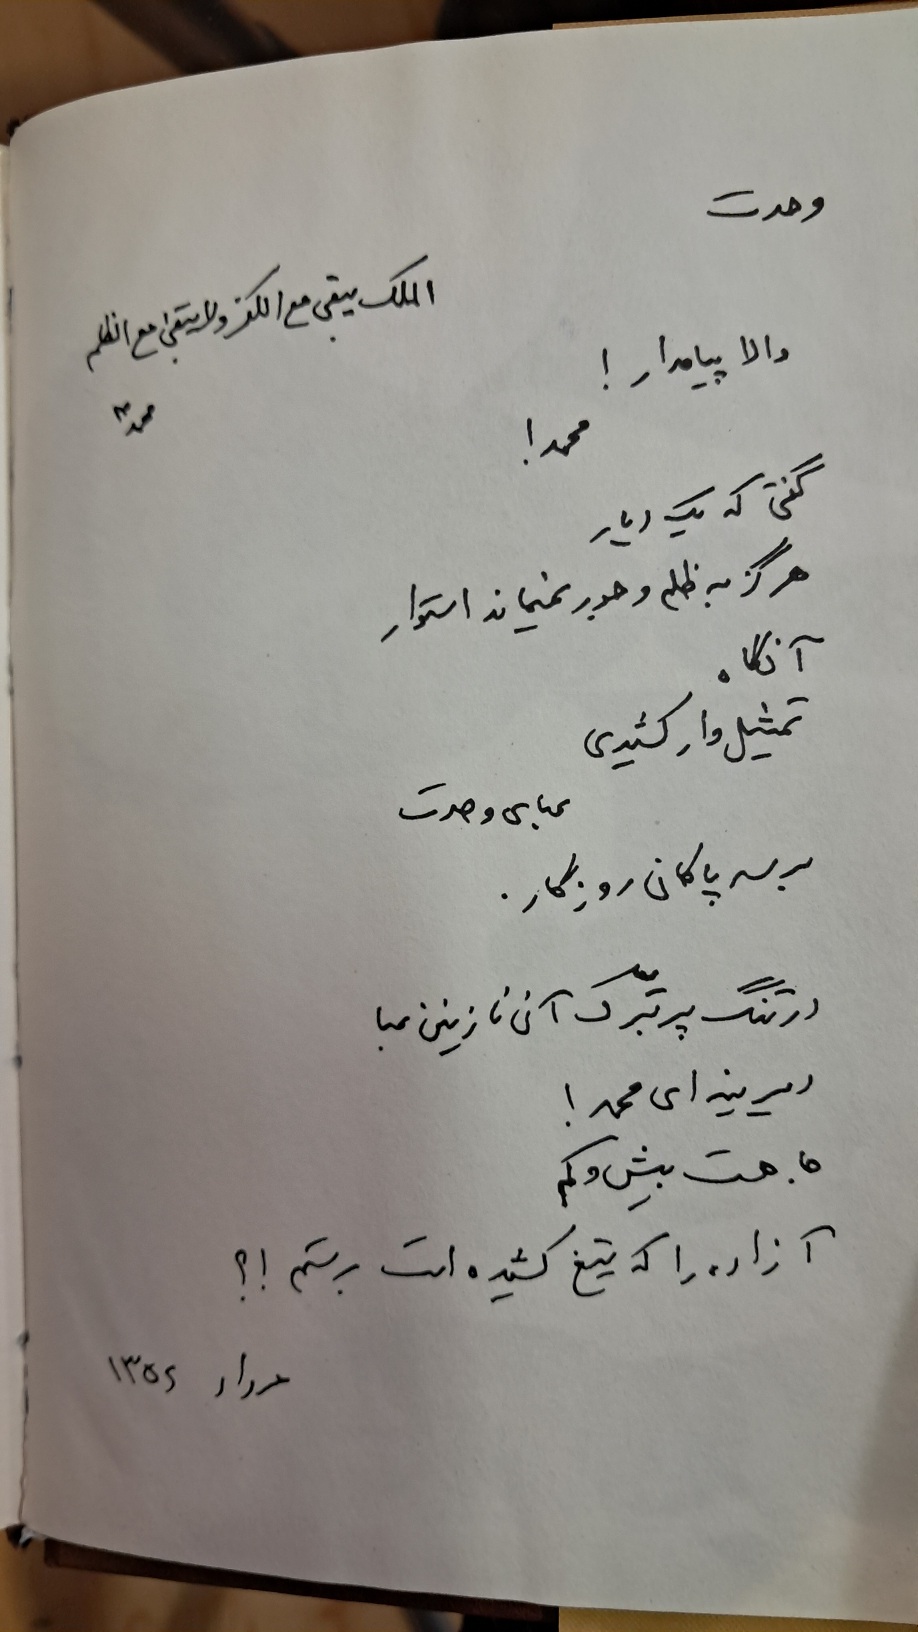 وحدت
الملک یبقی مع الکفر ولا یبقی مع الظلم
محمد ص
والا پیامدار !
محمد !
گفتی که یک دیار
هرگز به ظلم و جور نمیماند استوار
آنگاه
تمثیل وار کشیدی
عبای وحدت
بر سر پاکان روزگار .
در تنگ پر تبرّک آن نازنین عبا
دیرینه ای محمد !
جا هست بیش و کم
آزاده را که تیغ کشیده است بر ستم !؟
مرداد ۱۳۵۶